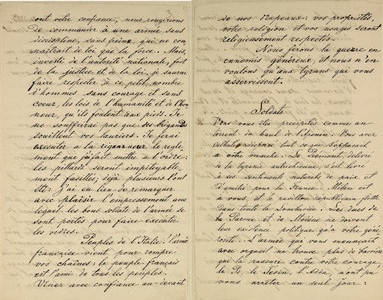 sont votre confiance, nous rougirions
de commander à une armée sans
discipline, sans frein, qui ne
connaîtrait de loi que la force. Mais,
investi de l'autorité nationale, fort
de la justice et de la loi, je saurai
faire respecter à ce petit nombre
d'hommes sans courage et sans
coeur, les lois de l'humanité et de l'hon
neur, qu'ils foulent aux pieds. Je
ne souffrirai pas que
souillent vos lauriers. Je ferai
exécuter à la rigueur le règle-
ment que j'ai fait mettre à l'ordre.
les pillards seront impitoyable-
ment fusillés; déjà plusieurs l'ont
été: j'ai eu lieu de remarquer
avec plaisir l'empressement avec
lequel les bons soldats de l'armée se
sont portés pour faire exécuter
les ordres.
Peuples de l'Italie: l'armée
française vient pour rompre
vos chaînes; le peuple français
est l'ami de tous les peuples.
Venez avec confiance au-devant
de nos drapeaux: vos propriétés,
votre religion et vos usages seront
religieusement respectés.
Nous ferons la guerre en
ennemis généreux, et nous n'en
voulons qu'aux tyrans qui vous
asservissent.
Soldats
Vous vous êtes précipités comme un
torrent du haut de l'Apennin. Vous avez
culbuté, dispersé tout ce qui s'opposait
à votre marche. Le Piémont, délivré
de la tyrannie autrichienne, s'est livré
à ses sentiments naturels de paix et
d'amitié pour la France. Milan est
à vous, et le pavillon républicain flotte
dans toute la Lombardie. Les ducs de
Parme et de Modène ne doivent
leur existence politique qu'à votre géné-
rosité. L'armée qui vous menaçait
avec orgueil ne trouve plus de barrière
qui la rassure contre votre courage
le Pô, le Tessin, l'Adda, n'ont pu
vous arrêter un seul jour;